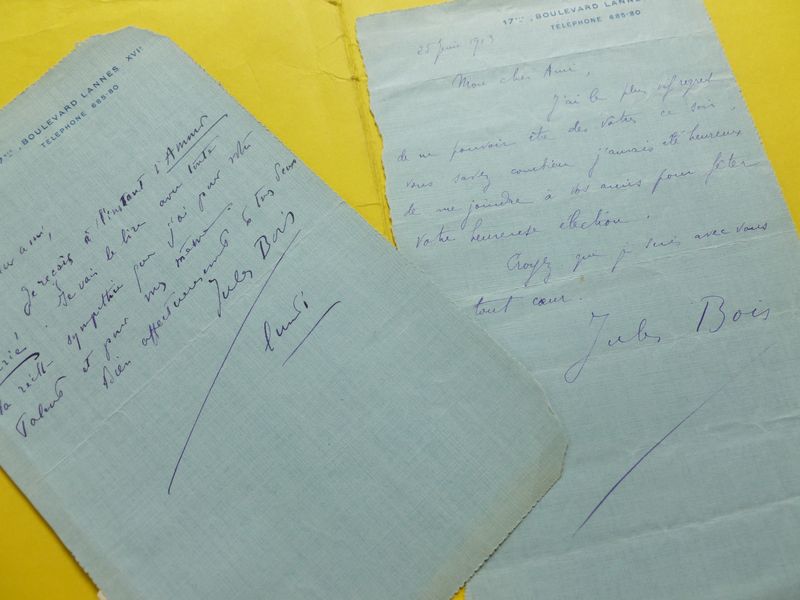 BOULEVARD LANNES XVIᵉ
TÉLÉPHONE 685-80
ami,
Je reçois à l'instant l'Amour
. Je vais le lire avec toute
la réelle sympathie que j'ai pour votre
Talent et pour
Bien affectueusement à tous deux
Jules Bois
lundi
17 BOULEVARD LANNE
TÉLÉPHONE 685-80
25 Juin 1913
Mon cher Ami,
J'ai le plus vif regret
de ne pouvoir être des vôtres ce soir.
vous savez combien j'aurais été heureux
de me joindre à vos amis pour fêter
votre heureuse élection.
Croyez que je suis avec vous
tout cœur.
Jules Bois